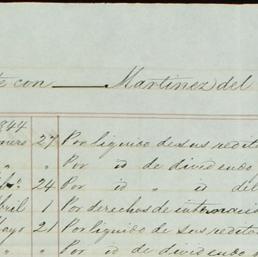 te con — Martinez del
1844
nero 27 Por liquido de sus redito
" " Por id de dividendo
b.o 24 Por id " id del
bril 1 Por derechos de internacio
ayo 21 Por liquido de sus redito
" " Por id de dividendo